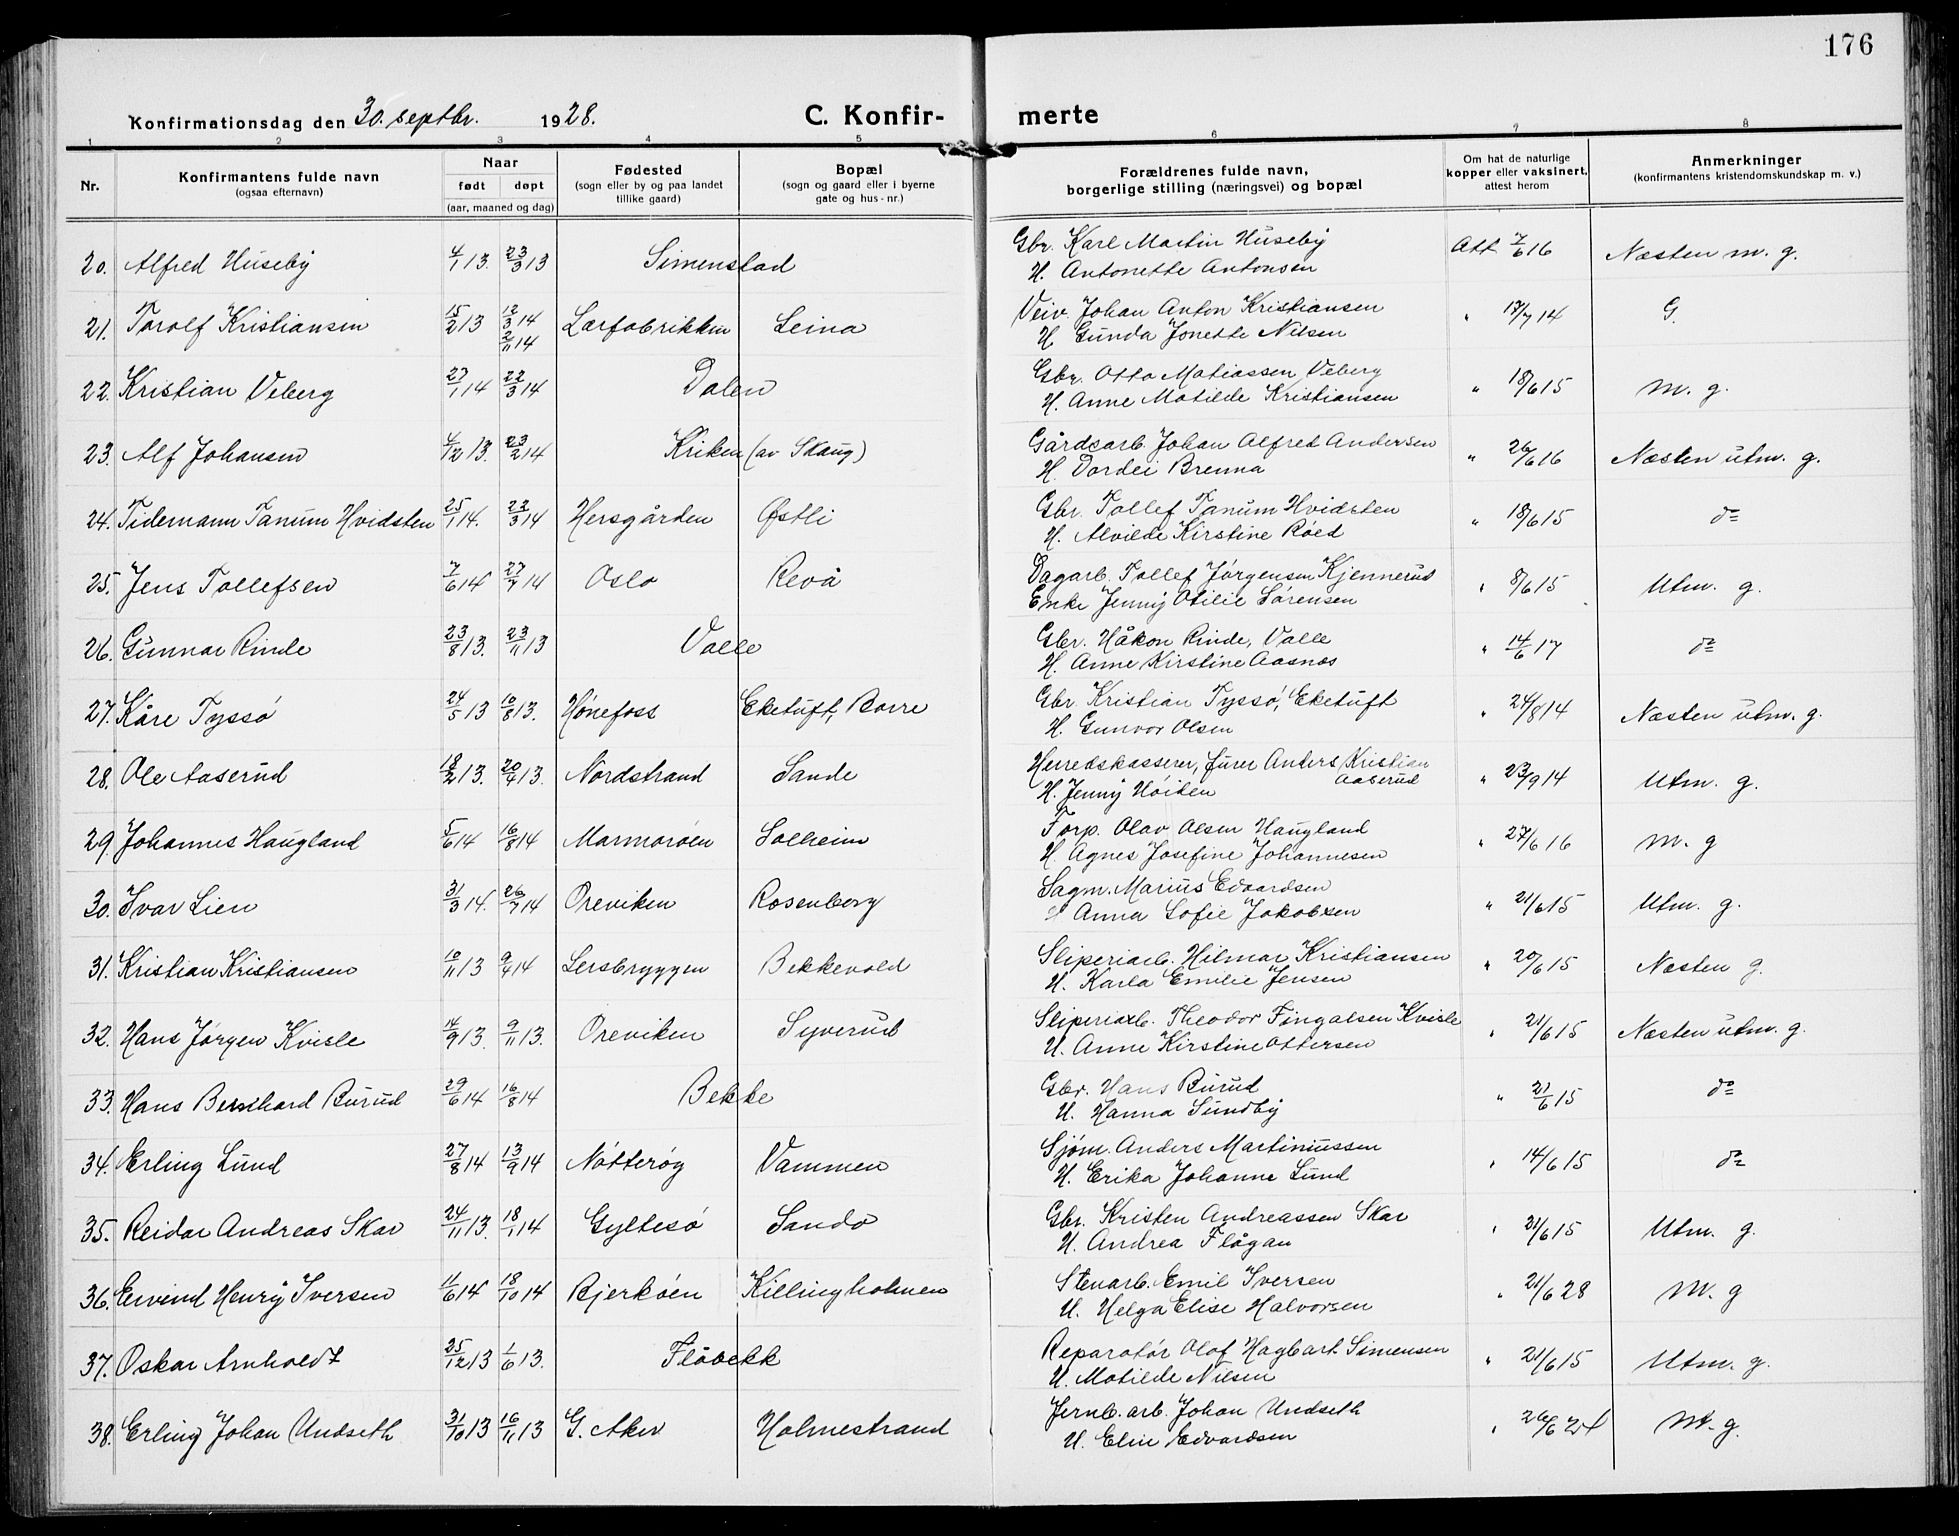 176
Konfirmationsdag den 30. septbr. 1928.
C. Konfirmerte
1 2 3 4 5 6 7 8
Nr. | Konfirmantens fulde navn (ogsaa efternavn) | Naar født døpt (aar, maaned og dag) | Fødested (sogn eller by og paa landet tillike gaard) | Bopæl (sogn og gaard eller i byerne gate og hus-nr.) | Forældrenes fulde navn, borgerlige stilling (næringsvei) og bopæl | Om hat de naturlige kopper eller vaksinert, attest herom | Anmerkninger (konfirmantens kristendomskundskap m. v.)
20. Alfred Huseby 4/1 13. 23/3 13 Simenstad Gbr. Karl Martin Huseby Att 7/6 16 Næsten m. g.
H. Antonette Antonsen
21. Torolf Kristiansen 15/2 13 12/3 14 2/11 14 Lærfabrikken Leina Veiv. Johan Anton Kristiansen " 17/7 14 G.
H Gunda Jonette Nilsen
22. Kristian Veberg 27/1 14 22/3 14 Dalen Gbr. Otto Matiassen Veberg " 18/6 15 M. g.
H. Anne Matilde Kristiansen
23. Alf Johansen 4/12 13. 23/2 14 Kirken (av Skaug) Gårdsarb. Johan Alfred Andersen " 26/6 16 Næsten utm. g.
H. Dordei Brenna
24. Tidemann Tanum Hvidsten 25/1 14. 22/3 14 Hersgården Østli Gbr. Tollef Tanum Hvidsten " 18/6 15 do
H. Alvilde Kirstine Røed
25. Jens Tollefsen 7/6 14 27/7 14 Oslo Revå Dagarb. Tollef Jørgensen Kjennerud " 8/6 15 Utm. g.
Enke Jenny Otilie Sørensen
26. Gunnar Rinde 23/8 13. 23/11 13 Valle Gbr. Håkon Rinde, Valle " 14/6 17 do
H. Anne Kirstine Aasnæs
27. Kåre Tyssø 24/5 13 10/8 13. Hønefoss Eketuft, Borre Gbr. Kristian Tyssø, Eketuft " 24/8 14 Næsten utm. g.
H. Gunvor Olsen
28. Ole Aaserud 18/2 13. 20/4 13. Nordstrand Sande Herredskasserer, furer Anders Kristian Aaserud " 23/9 14 Utm. g.
H. Jenny Høiten
29. Johannes Haugland 5/6 14 16/8 14 Marmorøen Solheim Forp. Olav Olsen Haugland " 27/6 16 M. g
H. Agnes Josefine Johannesen
30. Ivar Lien 31/3 14. 26/7 14 Oreviken Rosenborg Sagm. Marius Edvardsen " 21/6 15 Utm. g.
H Anna Sofie Jakobsen
31. Kristian Kristiansen 10/11 13 9/4 14 Lersbryggen Bekkevold Sliperiarb. Hilmar Kristiansen " 20/6 15 Næsten g.
H. Karla Emilie Jensen
32. Hans Jørgen Kvisle 14/9 13. 9/11 13. Oreviken Syverud Sliperiarb. Theodor Fingalsen Kvisle " 21/6 15 Næsten utm. g.
H. Anne Kirstine Ottersen
33. Hans Bernhard Burud 29/6 14 16/8 14 Bekke Gbr. Hans Burud " 21/6 15 do
H. Hanna Sundby
34. Erling Lund 27/8 14 13/9 14 Nøtterøy Vammen Sjøm. Anders Martiniussen " 14/6 15 do
H. Erika Johanne Lund
35. Reidar Andreas Skar 24/11 13. 18/1 14 Gyltesø Sandø Gbr. Kristen Andreassen Skar " 21/6 15 Utm. g.
H. Andrea Flågan
36. Eivind Henry Iversen 11/6 14 18/10 14 Bjerkøen Killingholmen Stenarb. Emil Iversen " 21/6 28 M. g
H. Helga Elise Halvorsen
37. Oskar Arnholdt 25/12 13 1/6 13. Flåbekk Reparatør Olof Hagbart Simensen " 21/6 15 Utm. g.
H. Matilde Nilsen
38. Erling Johan Undseth 31/10 13 16/11 13 G. Aker Holmestrand Jernb. arb. Johan Undseth " 26/6 24 M. g.
H. Elin Edvardsen